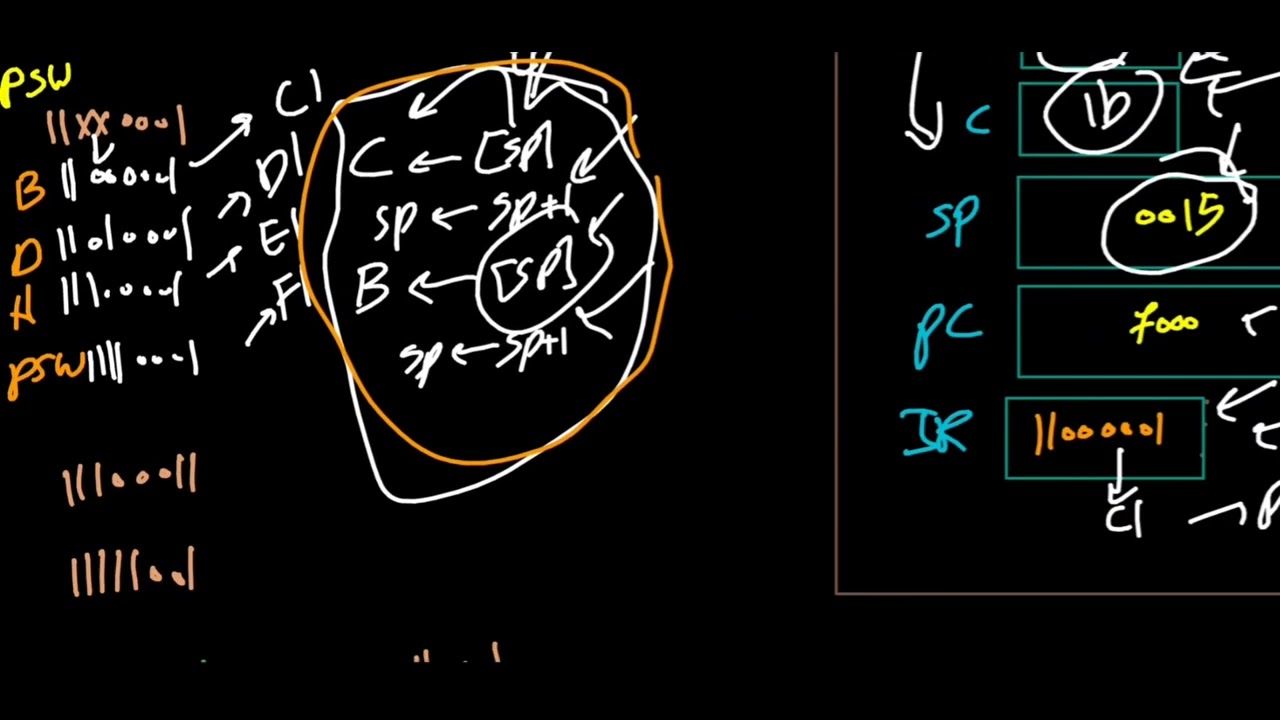 PSW
11XX0001
B 11000001 C1
D 11010001 D1
H 11100001 E1
PSW 11110001 F1
11100011
11111001
C ← [SP]
SP ← SP+1
B ← [SP]
SP ← SP+1
C 1b
SP 0015
PC 7000
IR 11000001
C1